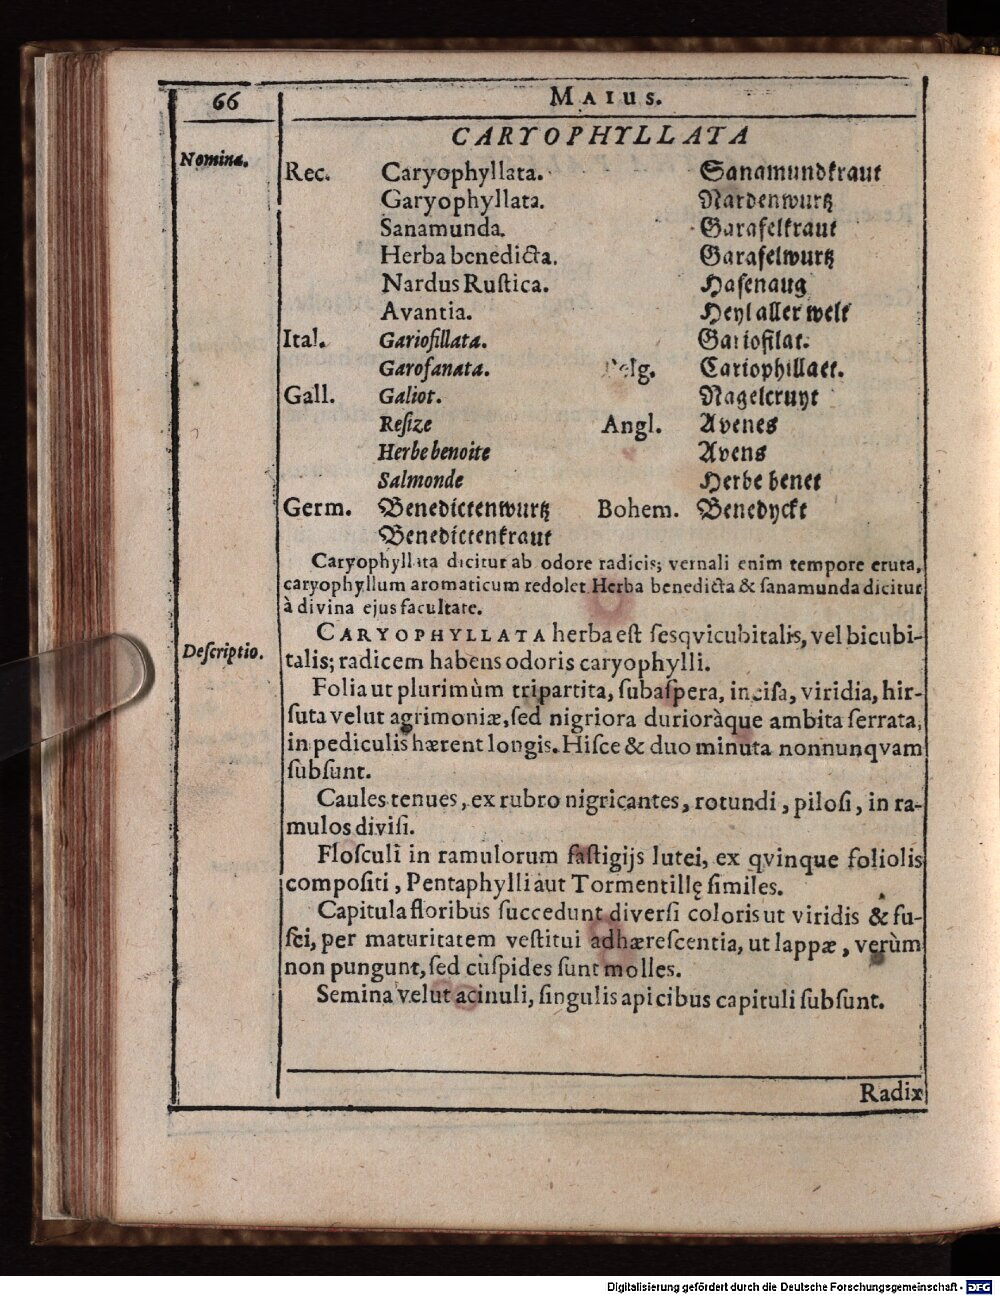 66 Maius.
CARYOPHYLLATA
Nomina.
Rec. Caryophyllata. Sanamundkraut
Garyophyllata. Nardenwurtz
Sanamunda. Garafelkraut
Herba benedicta. Garafelwurtz
Nardus Ruſtica. Haſenaug
Avantia. Heyl aller welt
Ital. Gariofillata. Gariofilat.
Garofanata. Belg. Cariophillaet.
Gall. Galiot. Nagelcruyt
Reſize Angl. Avenes
Herbe benoite Avens
Salmonde Herbe benet
Germ. Benedictenwurtz Bohem. Benedyckt
Benedictenkraut
Caryophyllata dicitur ab odore radicis; vernali enim tempore eruta,
caryophyllum aromaticum redolet Herba benedicta & ſanamunda dicitur
à divina ejus facultate.
Deſcriptio.
Caryophyllata herba eſt ſesqvicubitalis, vel bicubi-
talis; radicem habens odoris caryophylli.
Folia ut plurimùm tripartita, ſubaſpera, inciſa, viridia, hir-
ſuta velut agrimoniæ, ſed nigriora durioràque ambita ſerrata,
in pediculis hærent longis. Hiſce & duo minuta nonnunqvam
ſubſunt.
Caules tenues, ex rubro nigricantes, rotundi, piloſi, in ra-
mulos diviſi.
Floſculi in ramulorum faſtigijs lutei, ex qvinque foliolis
compoſiti, Pentaphylli aut Tormentillę ſimiles.
Capitula floribus ſuccedunt diverſi coloris ut viridis & fu-
ſci, per maturitatem veſtitui adhæreſcentia, ut lappæ, verùm
non pungunt, ſed cuſpides ſunt molles.
Semina velut acinuli, ſingulis apicibus capituli ſubſunt.
Radix
Digitalisierung gefördert durch die Deutsche Forschungsgemeinschaft - DFG